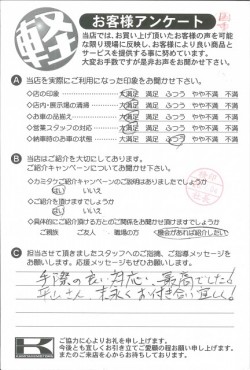 軽
お客様アンケート
当店では、お買い上げ頂いたお客様の声を可能
な限り現場に反映し、お客様により良い商品と
サービスを提供する事に努めています。
大変お手数ですが是非お声をお聞かせ下さい。
A 当店を実際にご利用になった印象をお聞かせ下さい。
◇店の印象 大満足 満足 ふつう やや不満 不満
◇店内・展示場の清掃 大満足 満足 ふつう やや不満 不満
◇お車の品揃え 大満足 満足 ふつう やや不満 不満
◇営業スタッフの対応 大満足 満足 ふつう やや不満 不満
◇納車時のお車の状態 大満足 満足 ふつう やや不満 不満
B 当店はご紹介を大切にしてあります。
ご紹介キャンペーンについてお聞かせ下さい。
◇カミタケご紹介キャンペーンのご説明はありましたでしょうか
はい いいえ
◇ご紹介を頂けますでしょうか
はい いいえ
◇具体的にご紹介頂ける方とのご関係をお聞かせ頂けますでしょうか
ご親族 ご友人 職場の方 機会があれば紹介したい
C 担当させて頂きましたスタッフへのご指摘、ご指導メッセージを
お願いします。応援メッセージもぜひお願いします。
手際の良い対応、最高でした!
平山さん、末永くお付き合い宜しく!
K
ご協力に心よりお礼を申し上げます。
今後とも宜しくお引き立てご愛顧の程お願い申し上げます。
またのご来店を心からお待ちしております。